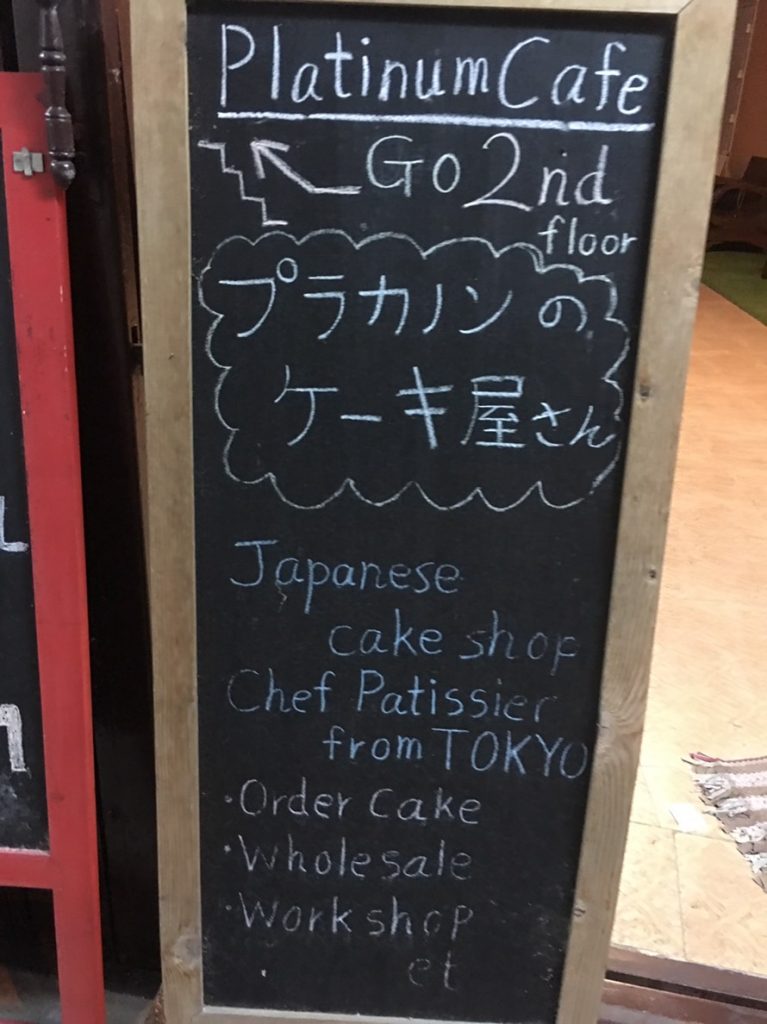 Platinum Cafe
Go 2nd
floor
プラカノンの
ケーキ屋さん
Japanese
cake shop
Chef Patissier
from TOKYO
・Order Cake
・Wholesale
・Workshop
・ et